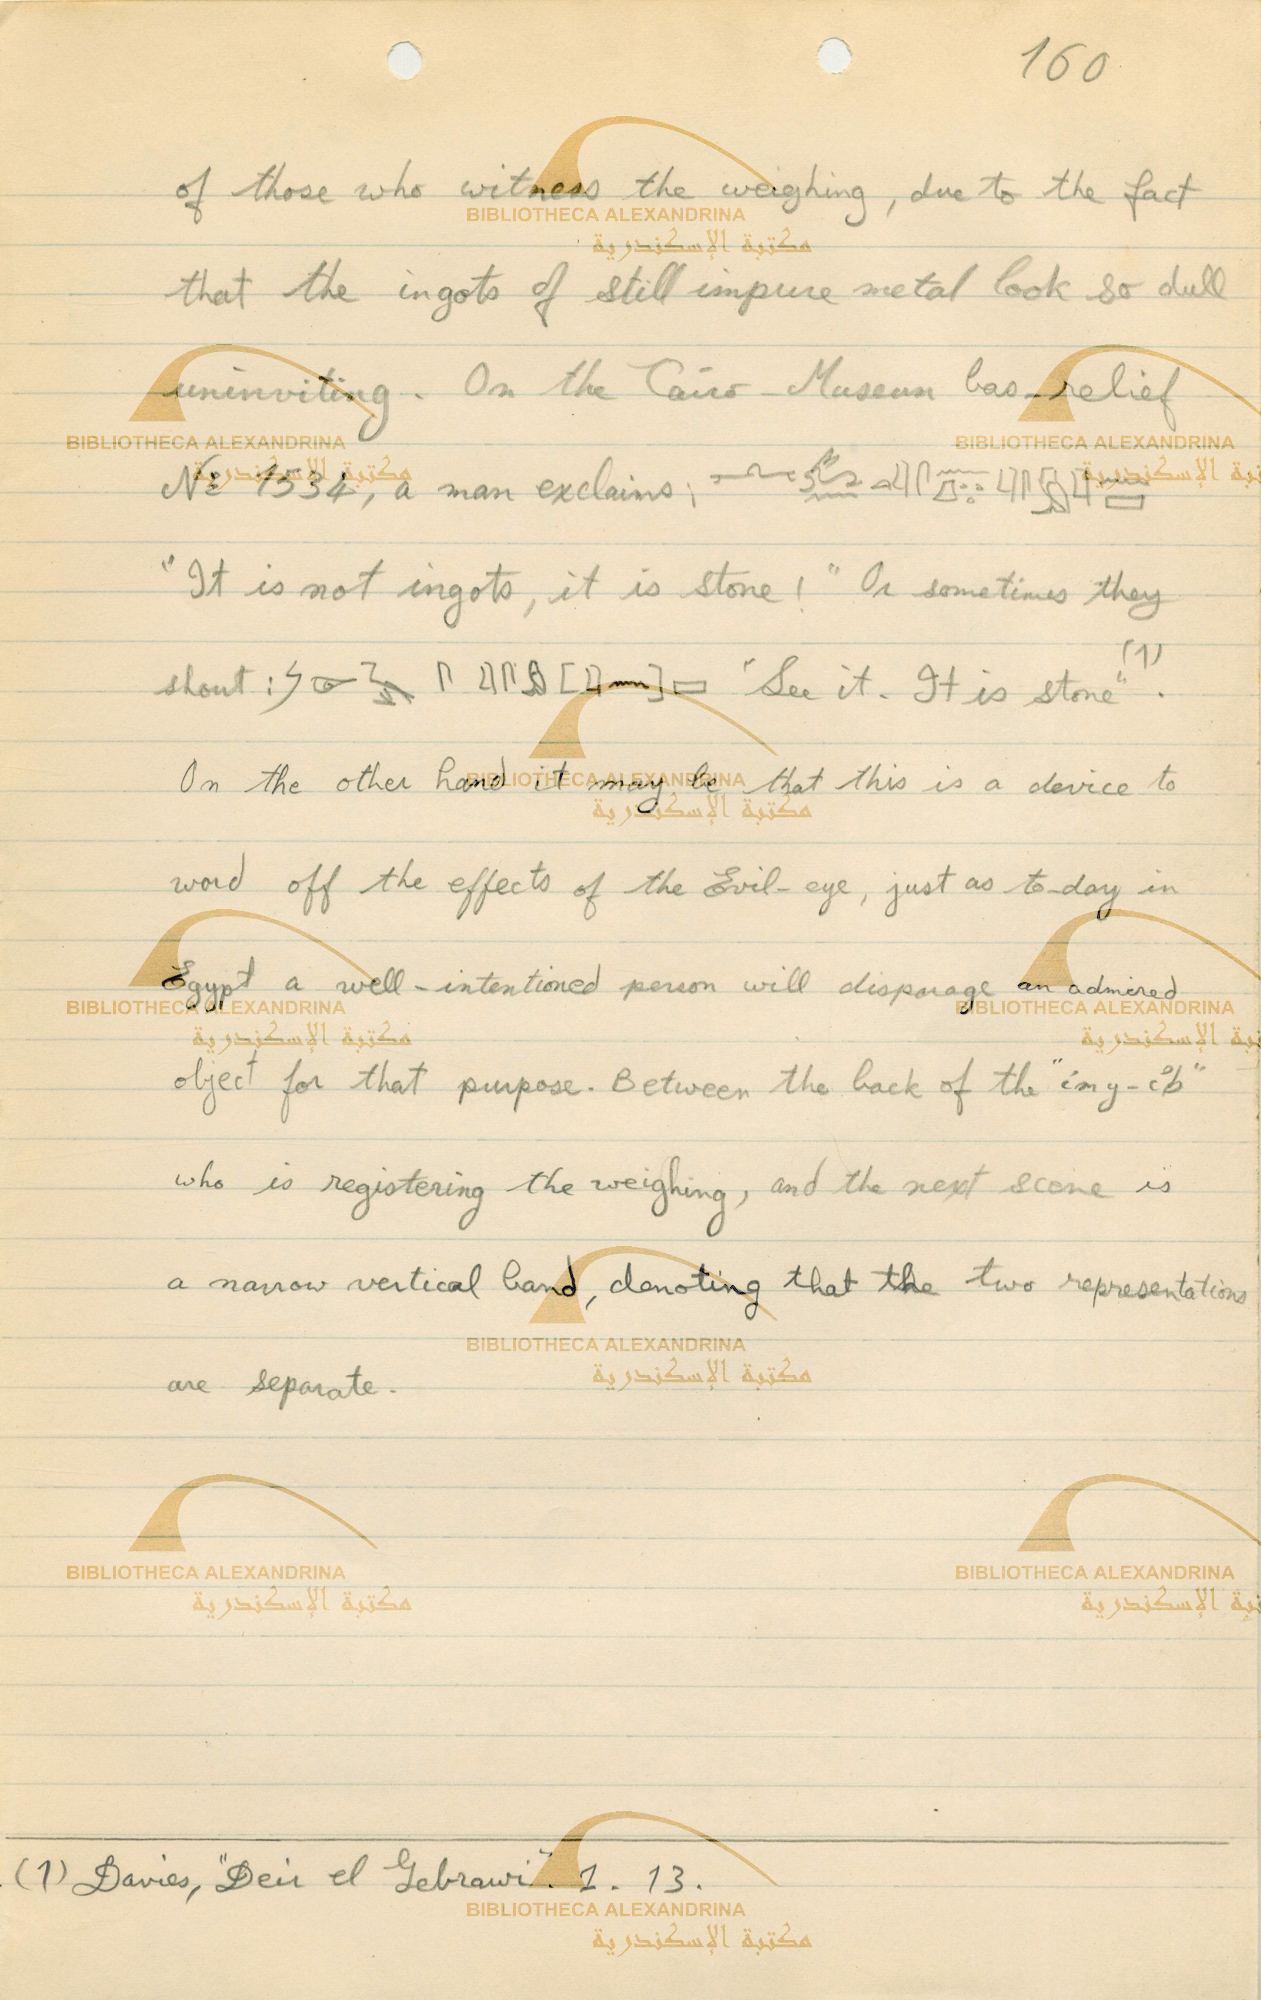 160
of those who witness the weighing, due to the fact
that the ingots of still impure metal look so dull
uninviting. On the Cairo-Museum bas-relief
No 1534, a man exclaims;
"It is not ingots, it is stone!" Or sometimes they
shout: "See it. It is stone"(1).
On the other hand it may be that this is a device to
word off the effects of the Evil-eye, just as to-day in
Egypt a well-intentioned person will disparage an admired
object for that purpose. Between the back of the "imy-ib"
who is registering the weighing, and the next scene is
a narrow vertical band, denoting that the two representations
are separate.
(1) Davies, "Deir el Gebrawi". 1. 13.
BIBLIOTHECA ALEXANDRINA
مكتبة الإسكندرية